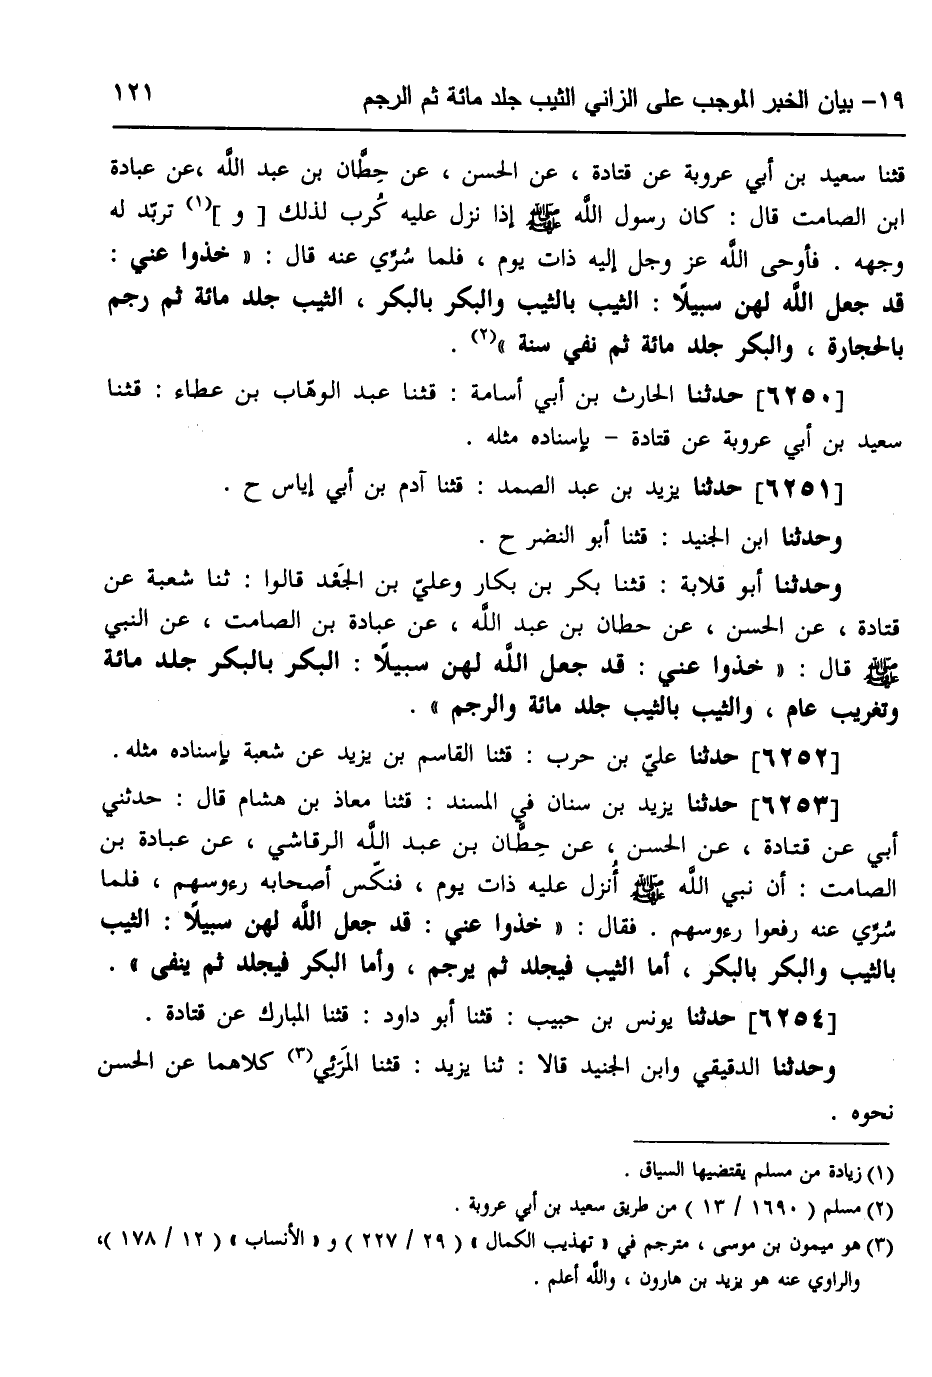 ١٩- بيان الخبر الموجب على الزاني الثيب جلد مائة ثم الرجم ١٢١
قثنا سعيد بن أبي عروبة عن قتادة ، عن الحسن ، عن حِطَّان بن عبد اللَّه ،عن عبادة
ابن الصامت قال : كان رسول اللَّه ﷺ إذا نزل عليه كُرب لذلك [ و ](١) تربّد له
وجهه . فأوحى اللَّه عز وجل إليه ذات يوم ، فلما سُرِّي عنه قال : « خذوا عني :
قد جعل اللَّه لهن سبيلًا : الثيب بالثيب والبكر بالبكر ، الثيب جلد مائة ثم رجم
بالحجارة ، والبكر جلد مائة ثم نفي سنة »(٢) .
[٦٢٥٠] حدثنا الحارث بن أبي أسامة : قثنا عبد الوهّاب بن عطاء : قثنا
سعيد بن أبي عروبة عن قتادة – بإسناده مثله .
[٦٢٥١] حدثنا يزيد بن عبد الصمد : قثنا آدم بن أبي إياس ح .
وحدثنا ابن الجنيد : قثنا أبو النضر ح .
وحدثنا أبو قلابة : قثنا بكر بن بكار وعليّ بن الجَعْد قالوا : ثنا شعبة عن
قتادة ، عن الحسن ، عن حطان بن عبد اللَّه ، عن عبادة بن الصامت ، عن النبي
ﷺ قال : « خذوا عني : قد جعل اللَّه لهن سبيلًا : البكر بالبكر جلد مائة
وتغريب عام ، والثيب بالثيب جلد مائة والرجم » .
[٦٢٥٢] حدثنا عليّ بن حرب : قثنا القاسم بن يزيد عن شعبة بإسناده مثله .
[٦٢٥٣] حدثنا يزيد بن سنان في المسند : قثنا معاذ بن هشام قال : حدثني
أبي عن قتادة ، عن الحسن ، عن حِطَّان بن عبد اللَّه الرقاشي ، عن عبادة بن
الصامت : أن نبي اللَّه ﷺ أُنزل عليه ذات يوم ، فنكّس أصحابه رءوسهم ، فلما
سُرِّي عنه رفعوا رءوسهم . فقال : « خذوا عني : قد جعل اللَّه لهن سبيلًا : الثيب
بالثيب والبكر بالبكر ، أما الثيب فيجلد ثم يرجم ، وأما البكر فيجلد ثم ينفى » .
[٦٢٥٤] حدثنا يونس بن حبيب : قثنا أبو داود : قثنا المبارك عن قتادة .
وحدثنا الدقيقي وابن الجنيد قالا : ثنا يزيد : قثنا المَرَئِي(٣) كلاهما عن الحسن
نحوه .
(١) زيادة من مسلم يقتضيها السياق .
(٢) مسلم ( ١٦٩٠ / ١٣ ) من طريق سعيد بن أبي عروبة .
(٣) هو ميمون بن موسى ، مترجم في « تهذيب الكمال » ( ٢٩ / ٢٢٧ ) و « الأنساب » ( ١٢ / ١٧٨ )،
والراوي عنه هو يزيد بن هارون ، واللَّه أعلم .